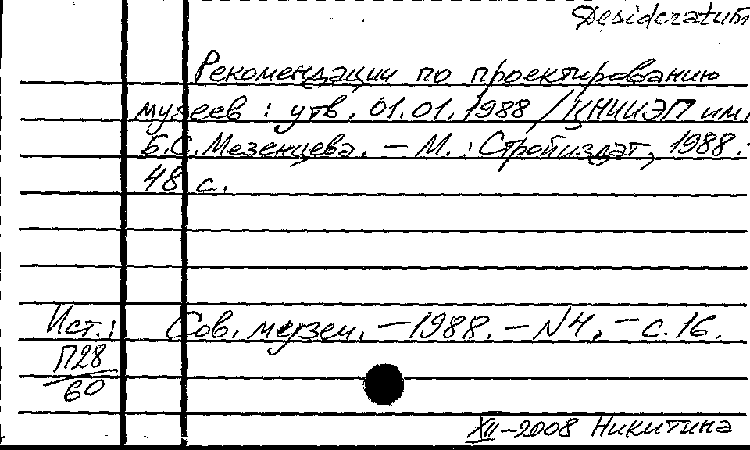 Desideratum
Рекомендации по проектированию
музеев : утв. 01.01.1988 / ЦНИИЭП им.
Б.С. Мезенцева. – М. : Стройиздат, 1988. –
48 с.
Ист.: Сов. музеи. – 1988. – N4. – с. 16.
П28
60
XII–2008 Никитина